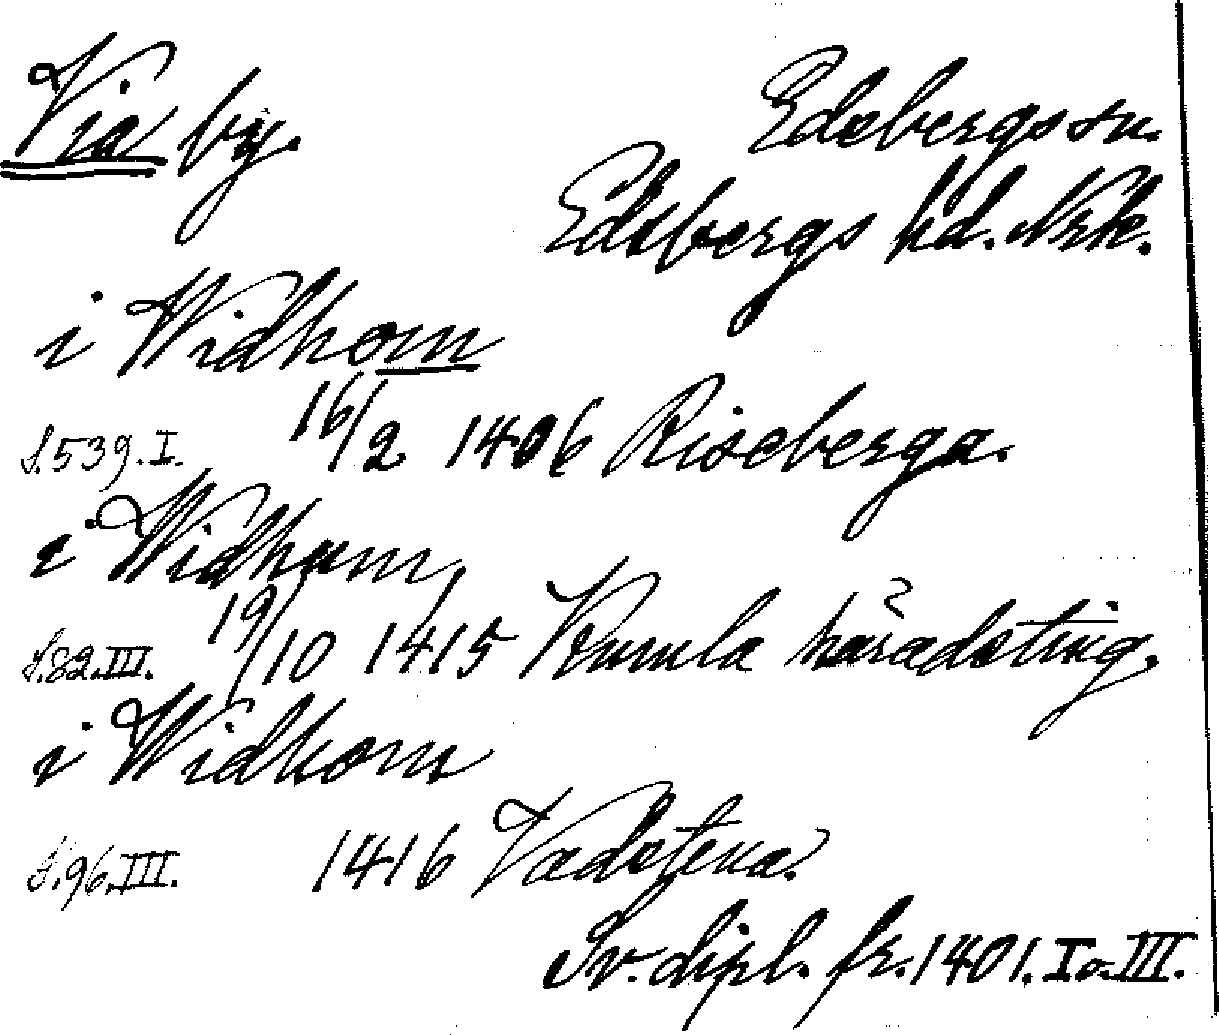 Via by. Edsbergs sn.
Edsbergs hd. Nrke.
i Widhom
S. 539. I. 16/2 1406 Riseberga.
i Widhum,
S. 82. III. 19/10 1415 Kumla häradsting.
i Widhom
S. 96. III. 1416 Vadstena.
Sv. dipl. fr. 1401. I o. III.